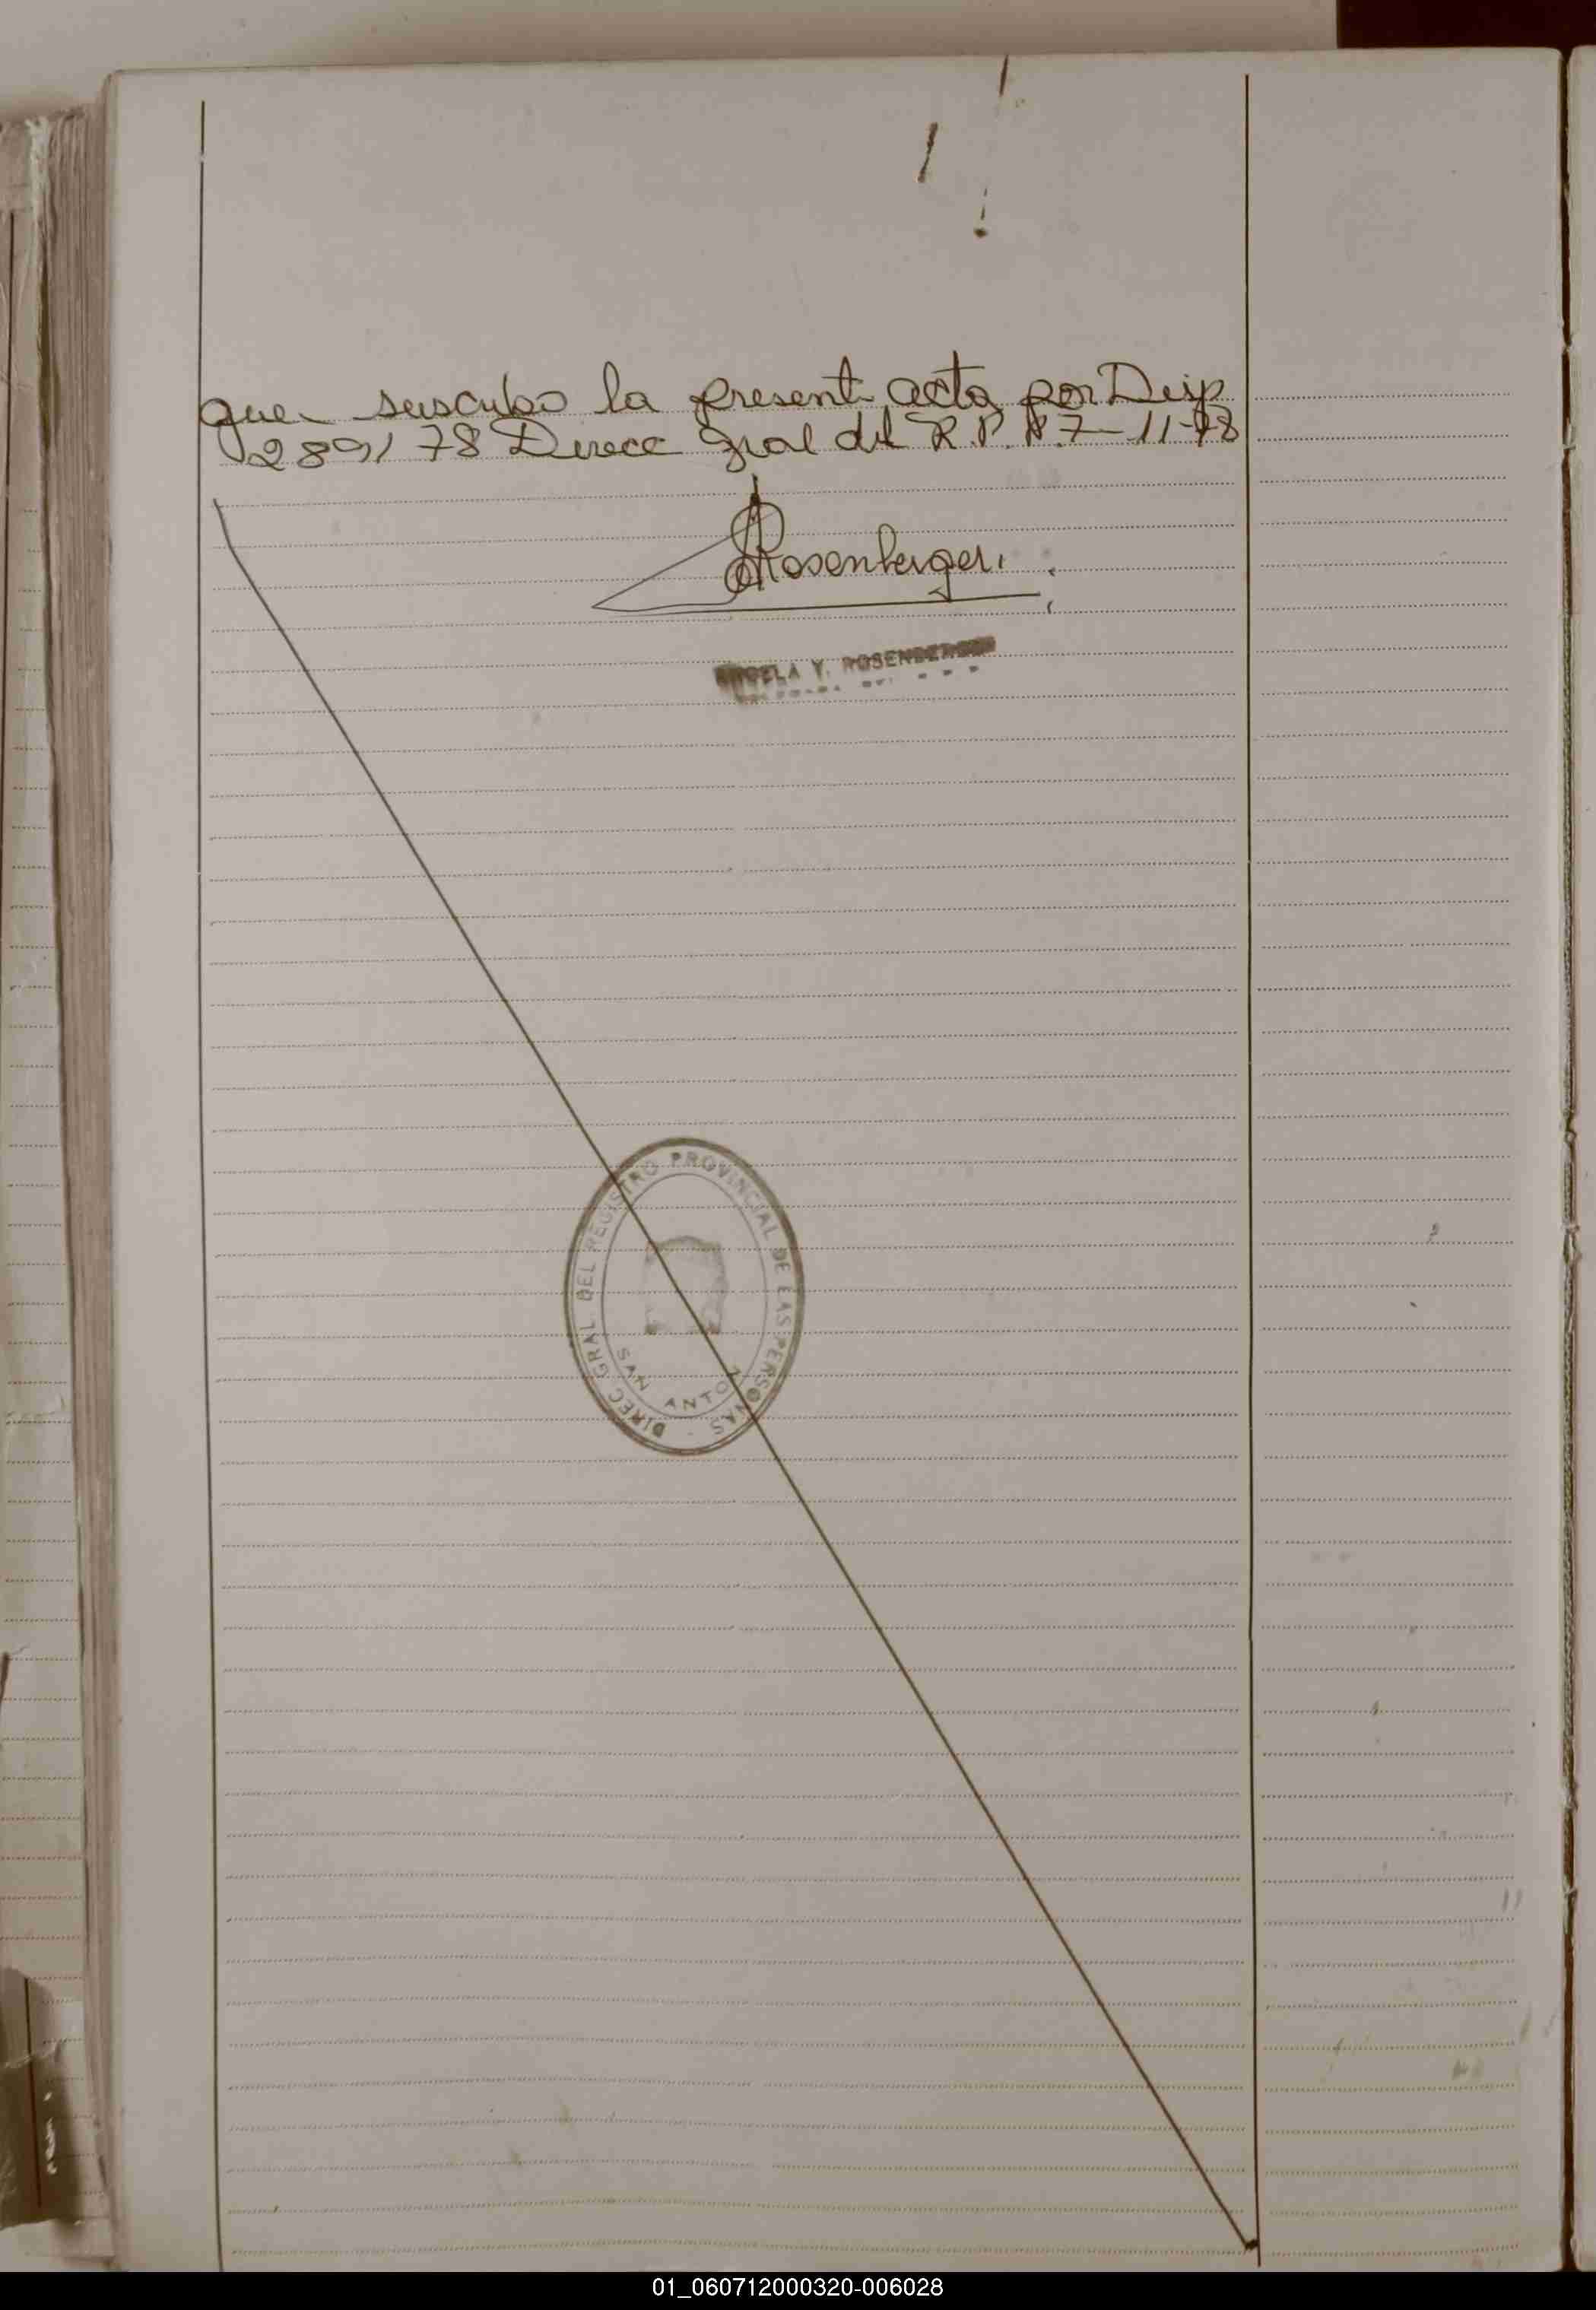 que suscribo la presente acta por Disp
289/78 Direcc Gral del R.P.P. 7-11-78
Rosenberger.
ANGELA Y. ROSENBERGER
DIREC GRAL DEL REGISTRO PROVINCIAL DE LAS PERSONAS -
SAN ANTO
01_060712000320-006028